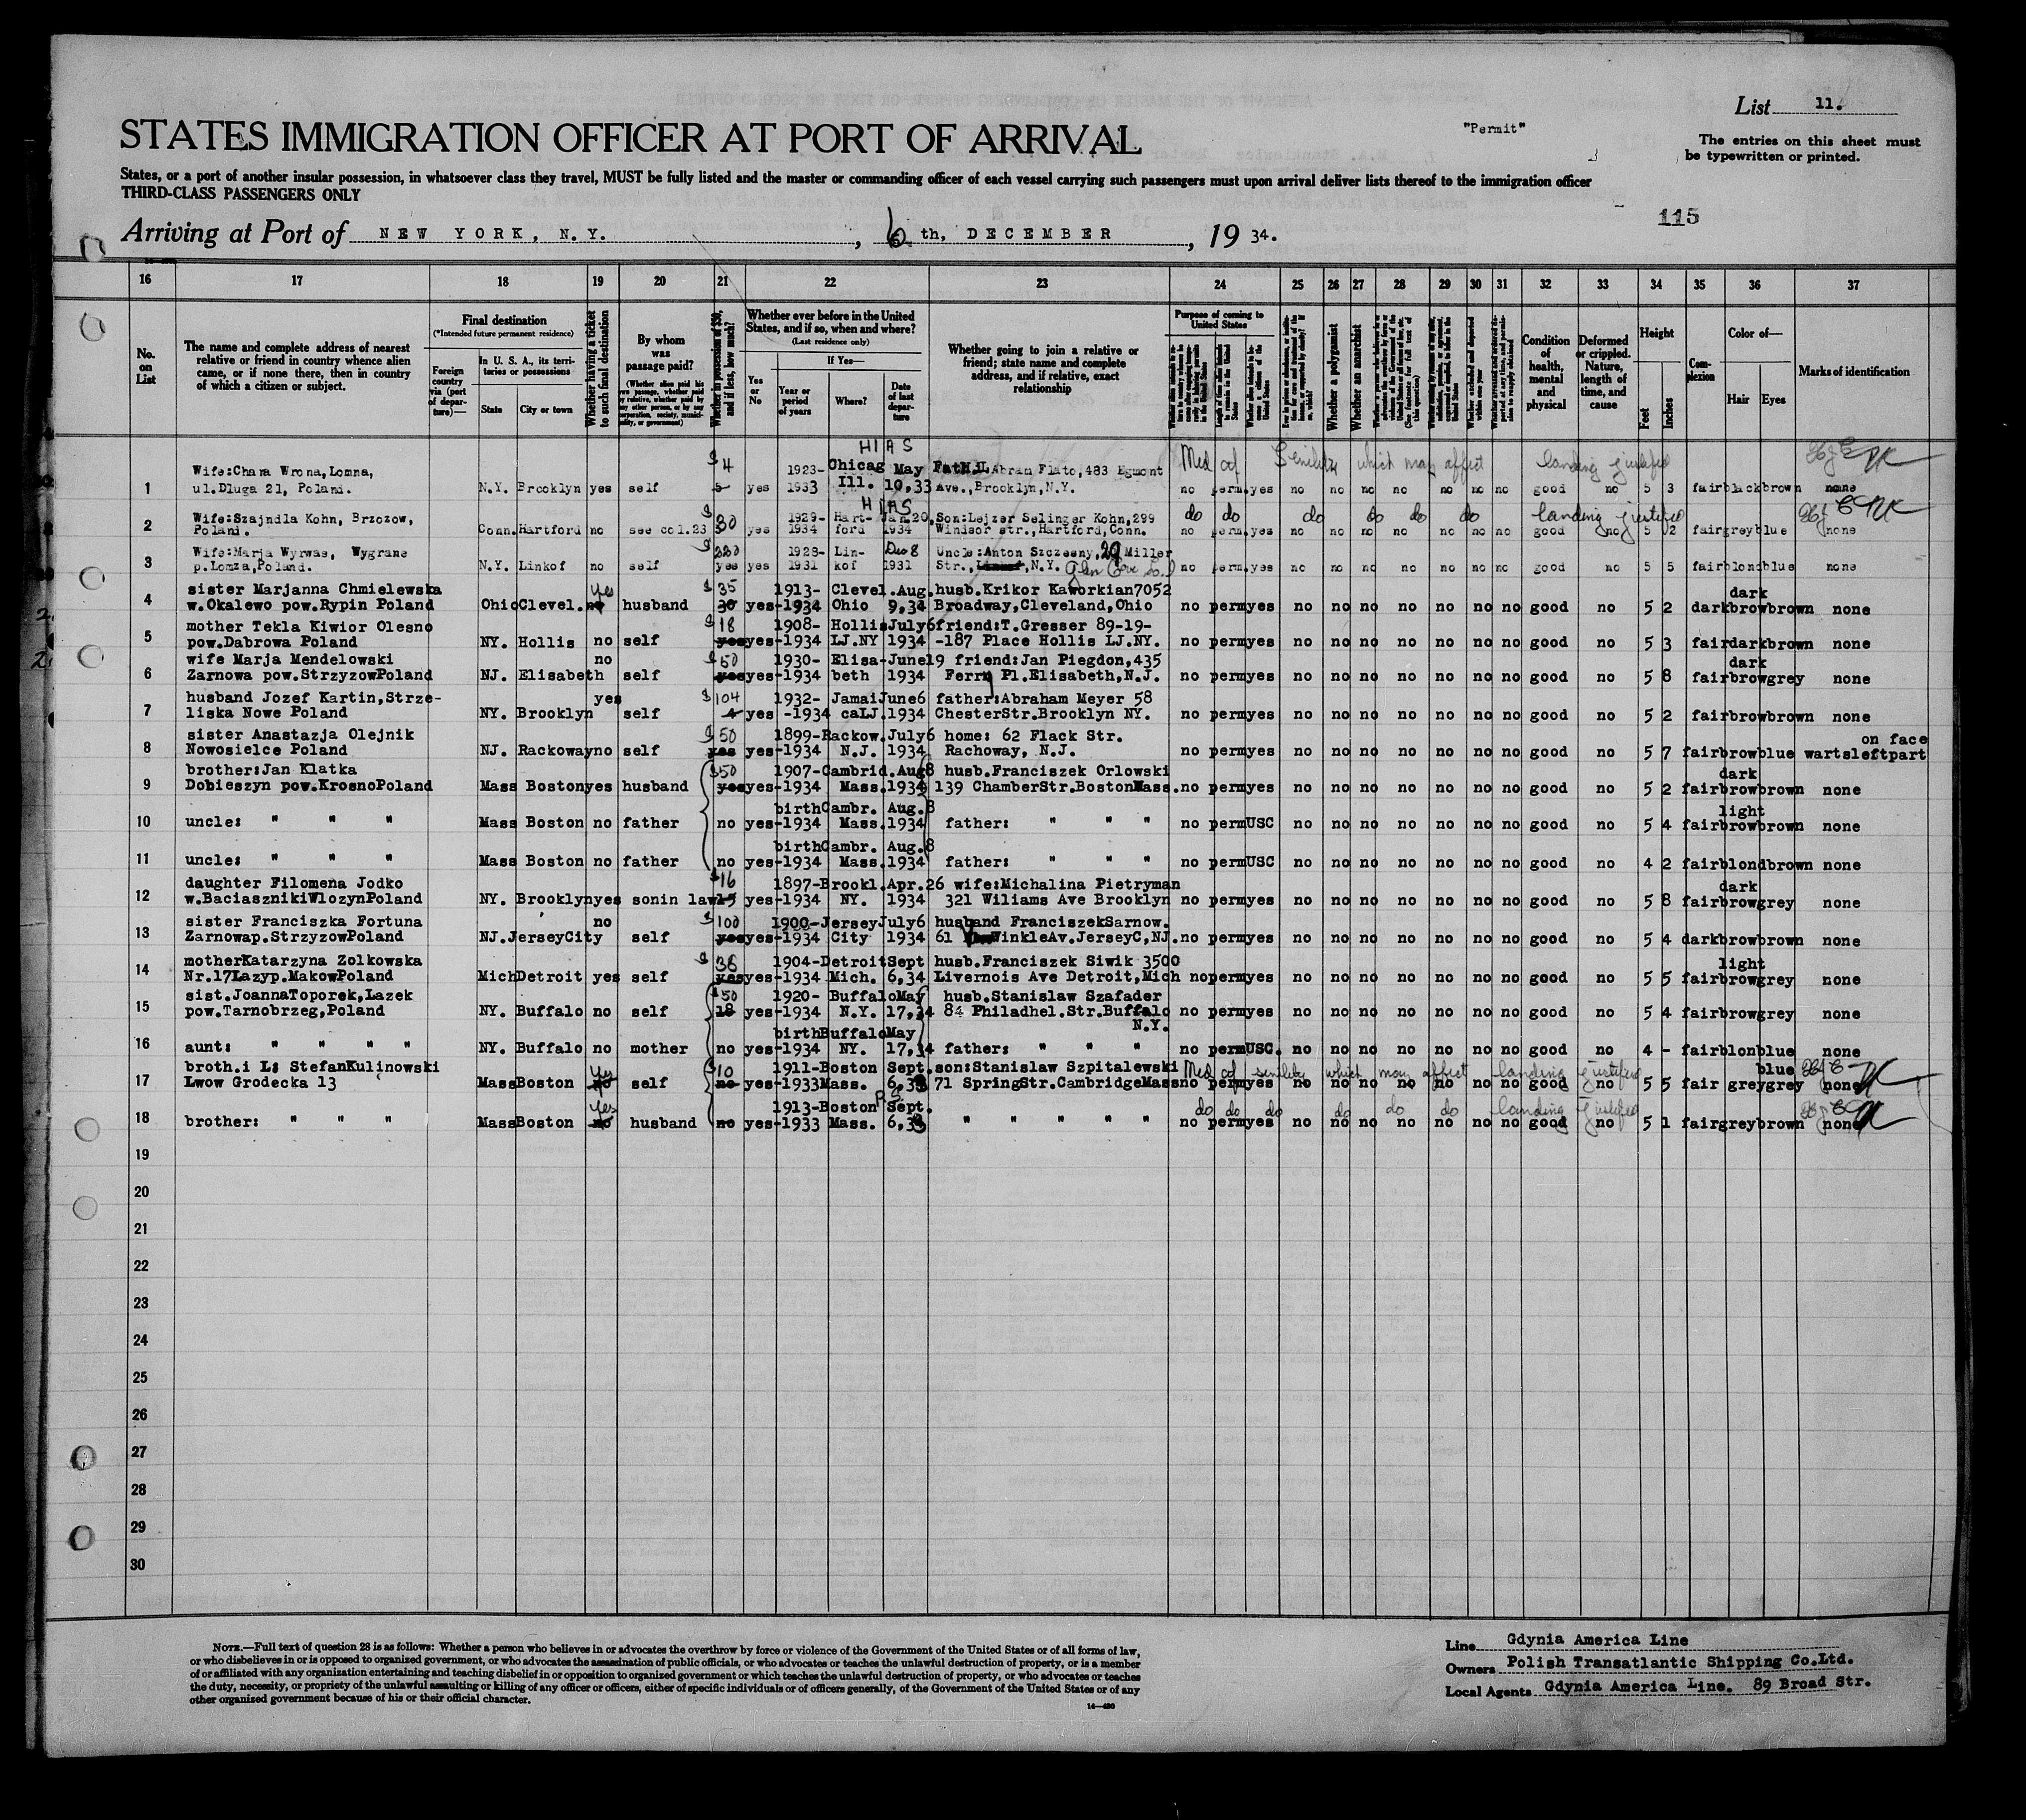 List 11.
"Permit"
STATES IMMIGRATION OFFICER AT PORT OF ARRIVAL
The entries on this sheet must
be typewritten or printed.
States, or a port of another insular possession, in whatsoever class they travel, MUST be fully listed and the master or commanding officer of each vessel carrying such passengers must upon arrival deliver lists thereof to the immigration officer
THIRD-CLASS PASSENGERS ONLY
115
Arriving at Port of NEW YORK, N.Y. , 6 th, DECEMBER , 19 34.
16 17 18 19 20 21 22 23 24 25 26 27 28 29 30 31 32 33 34 35 36 37
No. on List
The name and complete address of nearest relative or friend in country whence alien came, or if none there, then in country of which a citizen or subject.
Final destination
(*Intended future permanent residence)
Foreign country via (port of departure)—
In U. S. A., its territories or possessions
State City or town
Whether having a ticket to such final destination
By whom was passage paid?
Whether in possession of $50, and if less, how much?
Whether ever before in the United States, and if so, when and where?
(Last residence only)
Yes or No
If Yes—
Year or period of years
Where?
Date of last departure
Whether going to join a relative or friend; state name and complete address, and if relative, exact relationship
Purpose of coming to United States
Whether a polygamist
Whether an anarchist
Condition of health, mental and physical
Deformed or crippled. Nature, length of time, and cause
Height
Feet Inches
Complexion
Color of—
Hair Eyes
Marks of identification
HIAS
$4 1923- Chicag May Abram Flato, 483 Egmont Med cf Senility which may affect landing justified
Wife:Chara Wrona, Lomna,
1 ul.Dluga 21, Poland. N.Y. Brooklyn yes self yes 1933 Ill. 10,33 Ave.,Brooklyn,N.Y. no perm.yes no no no no no no no good no 5 3 fair black brown none
HIAS
Wife:Szajndla Kohn, Brzozow, $30 1929- Hart- Jan.20, Son:Lejzer Selinger Kohn,299 do do do do do do landing justified
2 Poland. Conn. Hartford no see col.23 yes 1934 ford 1934 Windsor str.,Hartford,Conn. no perm.yes no no no no no no no good no 5 2 fair grey blue none
Wife:Marja Wyrwas, Wygrane $220 1928- Lin- Dec 8 Uncle:Anton Szczesny, 29 Miller
3 p.Lomza,Poland. N.Y. Linkof no self yes yes 1931 kof 1931 Str., N.Y. Glen Cove L.I no perm.yes no no no no no no no good no 5 5 fair blond blue none
sister Marjanna Chmielewska yes $35 1913- Clevel.Aug. husb.Krikor Kaworkian7052 dark
4 w.Okalewo pow.Rypin Poland Ohio Clevel. no husband 30 yes-1934 Ohio 9,34 Broadway,Cleveland,Ohio no perm yes no no no no no no no good no 5 2 dark brow brown none
mother Tekla Kiwior Olesno $18 1908- Hollis July6 friend:T.Gresser 89-19-
5 pow.Dabrowa Poland NY. Hollis no self yes yes-1934 LJ.NY 1934 -187 Place Hollis LJ.NY. no perm yes no no no no no no no good no 5 3 fair dark brown none
wife Marja Mendelowski no $50 1930- Elisa-June19 friend:Jan Piegdon,435 dark
6 Zarnowa pow.Strzyzow Poland NJ. Elisabeth self yes yes-1934 beth 1934 Ferry Pl.Elisabeth,N.J. no perm yes no no no no no no no good no 5 8 fair brow grey none
husband Jozef Kartin,Strze- yes $104 1932- Jamai June6 father:Abraham Meyer 58
7 liska Nowe Poland NY. Brooklyn self 4 yes -1934 caLJ. 1934 ChesterStr.Brooklyn NY. no perm yes no no no no no no no good no 5 2 fair brow brown none
sister Anastazja Olejnik $50 1899-Rackow.July6 home: 62 Flack Str. on face
8 Nowosielce Poland NJ. Rackoway no self yes yes-1934 N.J. 1934 Rachoway, N.J. no perm yes no no no no no no no good no 5 7 fair brow blue warts left part
brother:Jan Klatka $50 1907-Cambrid.Aug8 husb.Franciszek Orlowski dark
9 Dobieszyn pow.Krosno Poland Mass Boston yes husband yes yes-1934 Mass. 1934 139 ChamberStr.Boston Mass. no perm yes no no no no no no no good no 5 2 fair brow brown none
birth Cambr. Aug.8 light
10 uncle: " " " Mass Boston no father no yes-1934 Mass. 1934 father: " " " no perm USC no no no no no no no good no 5 4 fair brow brown none
birth Cambr. Aug.8
11 uncle: " " " Mass Boston no father no yes-1934 Mass. 1934 father: " " " no perm USC no no no no no no no good no 4 2 fair blond brown none
daughter Filomena Jodko $16 1897-Brookl.Apr.26 wife:Michalina Pietryman dark
12 w.Baciaszniki Wlozyn Poland NY. Brooklyn yes sonin law 15 yes-1934 NY. 1934 321 Wiliams Ave Brooklyn no perm yes no no no no no no no good no 5 8 fair brow grey none
sister Franciszka Fortuna no $100 1900-Jersey July6 husband Franciszek Sarnow.
13 Zarnowa p.Strzyzow Poland NJ. Jersey City self yes yes-1934 City 1934 61 WinkleAv.JerseyC,NJ. no perm yes no no no no no no no good no 5 4 dark brow brown none
mother Katarzyna Zolkowska $38 1904-Detroit Sept husb.Franciszek Siwik 3500 light
14 Nr.17Lazyp.Makow Poland Mich Detroit yes self yes yes-1934 Mich. 6,34 Livernois Ave Detroit,Mich no perm yes no no no no no no no good no 5 5 fair brow grey none
sist.Joanna Toporek,Lazek $50 1920- Buffalo May husb.Stanislaw Szafader
15 pow.Tarnobrzeg,Poland NY. Buffalo no self 18 yes-1934 N.Y. 17,34 84 Philadhel.Str.Buffalo no perm yes no no no no no no no good no 5 4 fair brow grey none
birth Buffalo May N.Y.
16 aunt: " " " " NY. Buffalo no mother no yes-1934 NY. 17,34 father: " " " no perm USC. no no no no no no no good no 4 - fair blon blue none
broth.i L: Stefan Kulinowski yes $10 1911-Boston Sept. son:Stanislaw Szpitalewski Med cf senility which may affect landing justified blue
17 Lwow Grodecka 13 Mass Boston no self no yes-1933 Mass. 6,33 71 SpringStr.Cambridge Mass no perm yes no no no no no no no good no 5 5 fair grey grey none
yes 1913-Boston Sept. do do do do do do landing justified
18 brother: " " " Mass Boston no husband no yes-1933 Mass. 6,33 " " " " " no perm yes no no no no no no no good no 5 1 fair grey brown none
19
20
21
22
23
24
25
26
27
28
29
30
NOTE.—Full text of question 28 is as follows: Whether a person who believes in or advocates the overthrow by force or violence of the Government of the United States or of all forms of law,
or who disbelieves in or is opposed to organized government, or who advocates the assassination of public officials, or who advocates or teaches the unlawful destruction of property, or is a member
of or affiliated with any organization entertaining and teaching disbelief in or opposition to organized government or which teaches the unlawful destruction of property, or who advocates or teaches
the duty, necessity, or propriety of the unlawful assaulting or killing of any officer or officers, either of specific individuals or of officers generally, of the Government of the United States or of any
other organized government because of his or their official character.
Line Gdynia America Line
Owners Polish Transatlantic Shipping Co.Ltd.
Local Agents Gdynia America Line. 89 Broad Str.